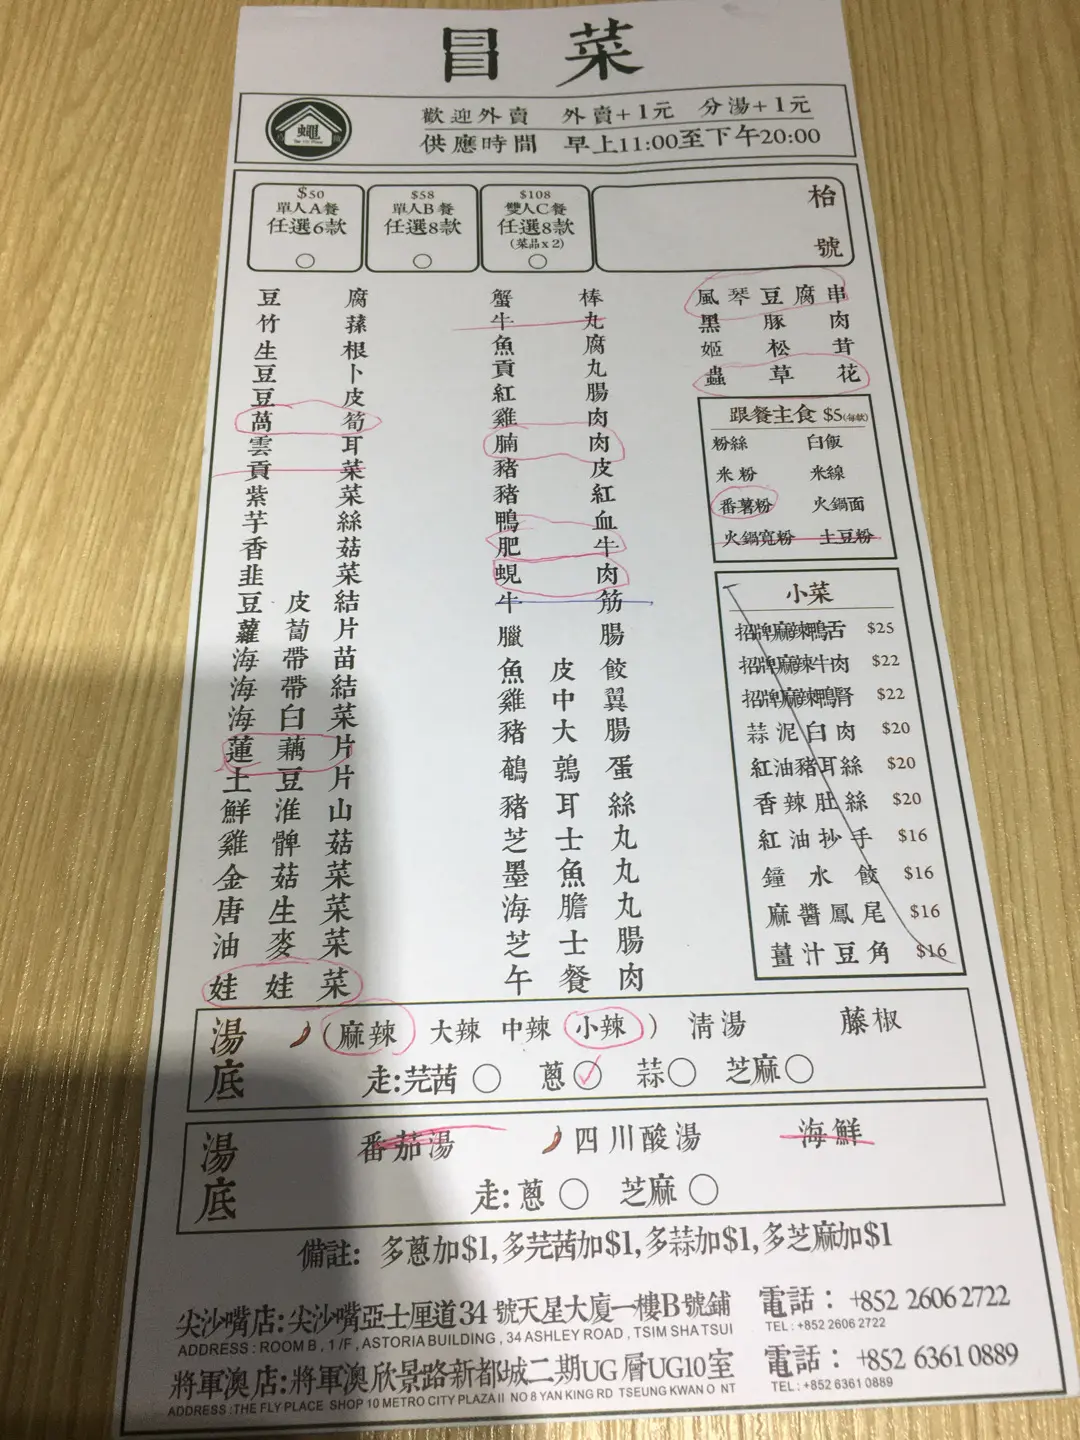 冒菜
蠅
The Fly Place
歡迎外賣 外賣+1元 分湯+1元
供應時間 早上11:00至下午20:00
$50
單人A餐
任選6款
$58
單人B餐
任選8款
$108
雙人C餐
任選8款
(菜品x2)
枱號
豆腐
竹蓀
生根
豆卜
豆皮
萵筍
雲耳
貢菜
紫菜
芋絲
香菇
韭菜
豆皮結
蘿蔔片
海帶苗
海帶結
海白菜
蓮藕片
土豆片
鮮淮山
雞髀菇
金菇菜
唐生菜
油麥菜
娃娃菜
蟹棒
牛丸
魚腐
貢丸
紅腸
雞肉
腩肉
豬皮
豬紅
鴨血
肥牛
蜆肉
牛筋
臘腸
魚皮餃
雞中翼
豬大腸
鵪鶉蛋
豬耳絲
芝士丸
墨魚丸
海膽丸
芝士腸
午餐肉
風琴豆腐串
黑豚肉
姬松茸
蟲草花
跟餐主食 $5(每款)
粉絲 白飯
米粉 米線
番薯粉 火鍋面
火鍋寬粉 土豆粉
小菜
招牌麻辣鴨舌 $25
招牌麻辣牛肉 $22
招牌麻辣鴨腎 $22
蒜泥白肉 $20
紅油豬耳絲 $20
香辣肚絲 $20
紅油抄手 $16
鐘水餃 $16
麻醬鳳尾 $16
薑汁豆角 $16
湯底 (麻辣 大辣 中辣 小辣) 清湯 藤椒
走:芫茜 蔥 蒜 芝麻
湯底 番茄湯 四川酸湯 海鮮
走:蔥 芝麻
備註: 多蔥加$1,多芫茜加$1,多蒜加$1,多芝麻加$1
尖沙嘴店:尖沙嘴亞士厘道34號天星大廈一樓B號鋪 電話：+852 2606 2722
ADDRESS : ROOM B , 1 /F , ASTORIA BUILDING , 34 ASHLEY ROAD , TSIM SHA TSUI TEL : +852 2606 2722
將軍澳店:將軍澳欣景路新都城二期UG層UG10室 電話：+852 6361 0889
ADDRESS :THE FLY PLACE SHOP 10 METRO CITY PLAZA II NO 8 YAN KING RD TSEUNG KWAN O NT TEL : +852 6361 0889